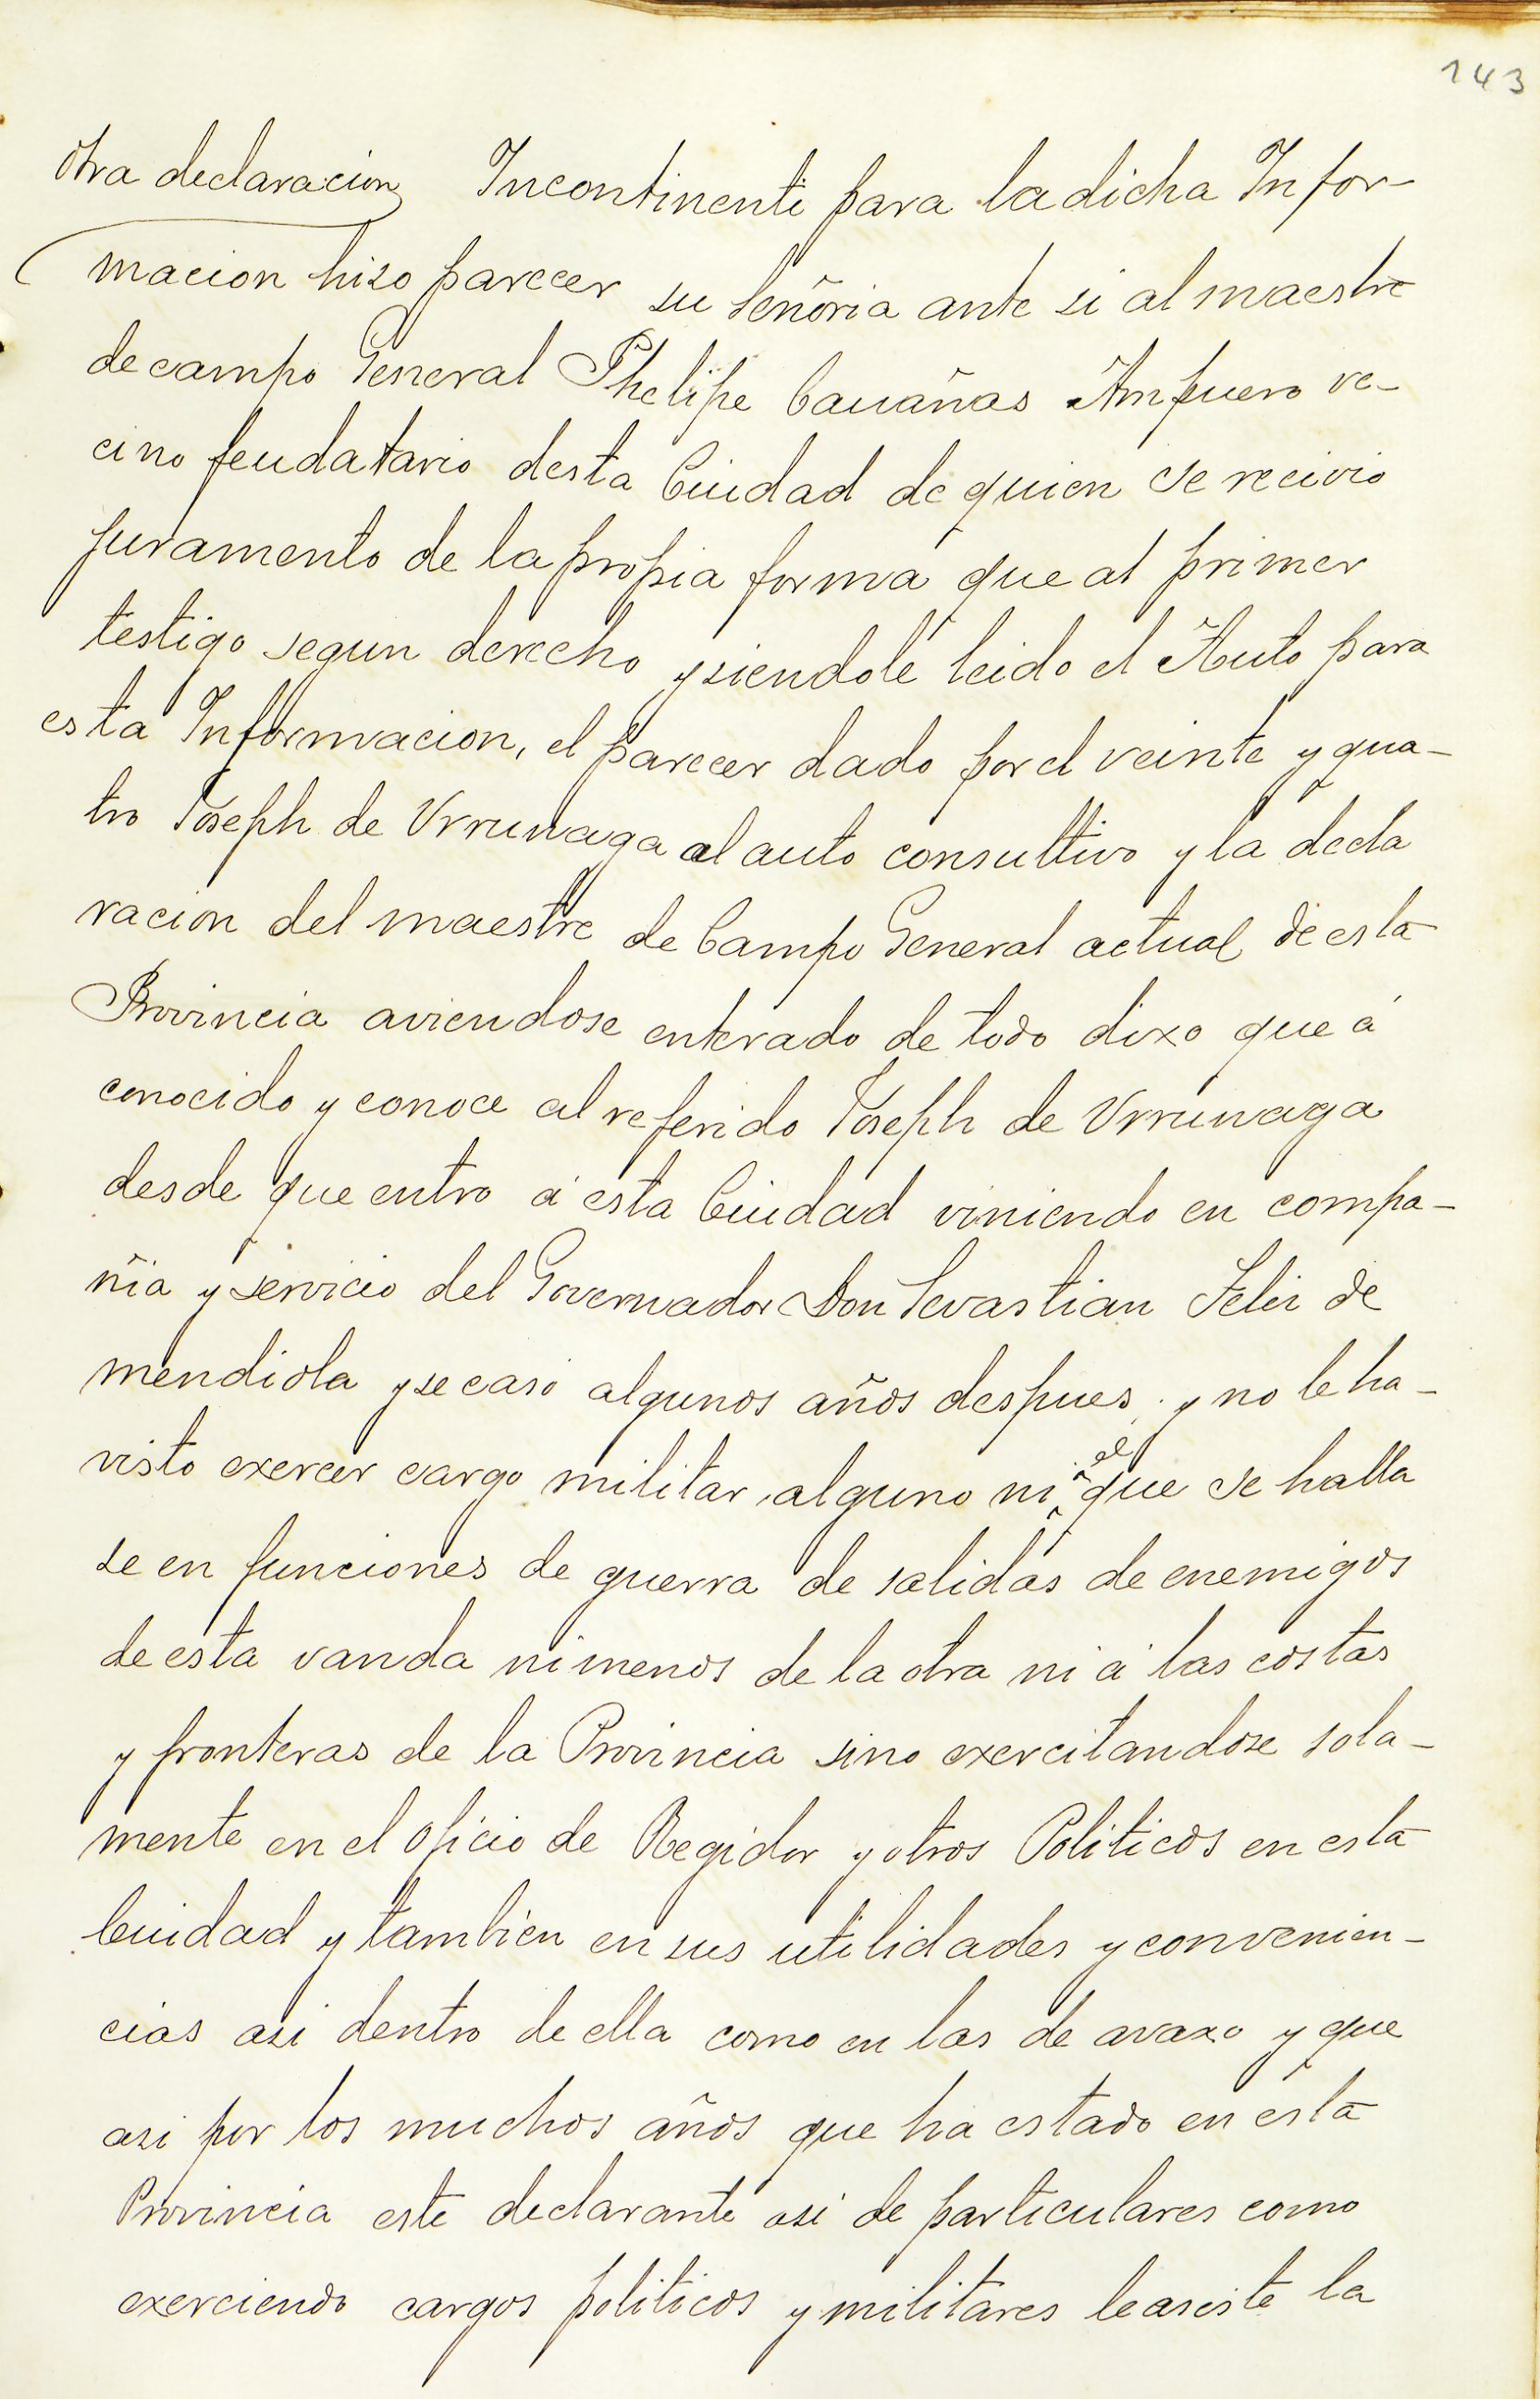 143
Otra declaracion Incontinenti para la dicha Infor-
macion hiso parecer su Señoria ante si al maestre
de campo General Phelipe Cauañas Ampuero ve-
cino feudatario desta Ciudad de quien se recivio
juramento de la propia forma que al primer
testigo segun derecho y siendole leido el Auto para
esta Informacion, el parecer dado por el veinte y qua-
tro Joseph de Vrrunaga al auto consultivo y la decla
racion del maestre de Campo General actual de esta
Provincia aviendose enterado de todo dixo que á
conocido y conoce al referido Joseph de Vrrunaga
desde que entro á esta Ciudad viniendo en compa-
ñia y servicio del Governador Don Sevastian Felix de
mendiola y se caso algunos años despues, y no le ha-
visto exercer cargo militar alguno ni el que se halla
se en funciones de guerra de salidas de enemigos
de esta vanda ni menos de la otra ni á las costas
y fronteras de la Provincia sino exercitandose sola-
mente en el oficio de Regidor y otros Politicos en esta
Ciudad y tambien en sus utilidades y convenien-
cias asi dentro de ella como en las de avaxo y que
asi por los muchos años que ha estado en esta
Provincia este declarante asi de particulares como
exerciendo cargos politicos y militares le asiste la